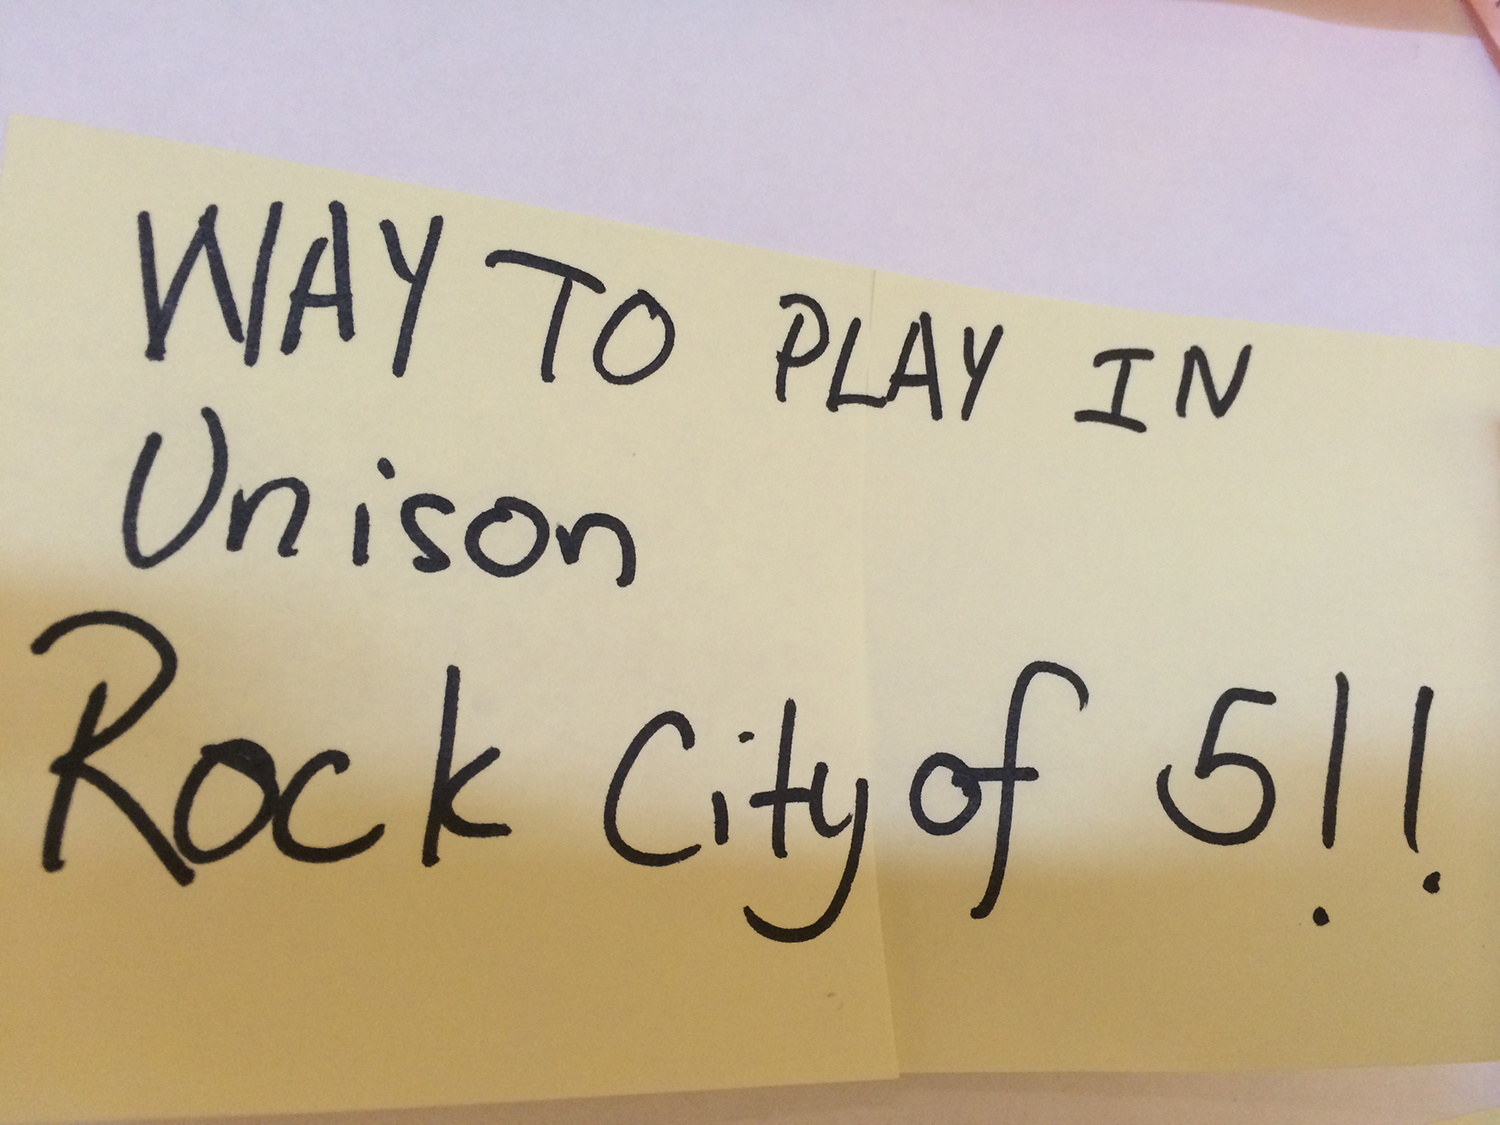 WAY TO PLAY IN
Unison
Rock City of 5!!